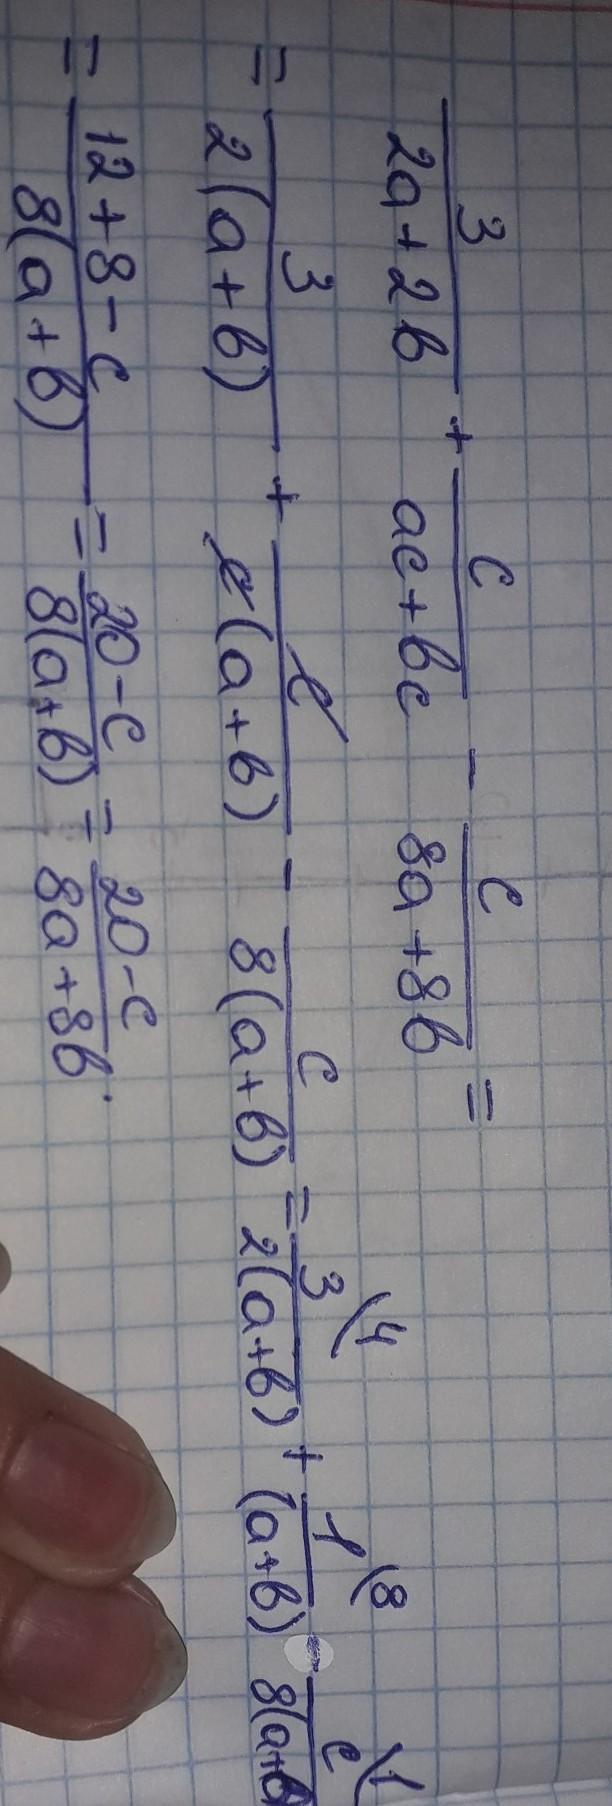 3/(2a+2b) + c/(ac+bc) - c/(8a+8b) =
= 3/(2(a+b)) + c/(c(a+b)) - c/(8(a+b)) = 3\4/(2(a+b)) + 1\8/((a+b)) - c\1/(8(a+b)
= (12+8-c)/(8(a+b)) = (20-c)/(8(a+b)) = (20-c)/(8a+8b).